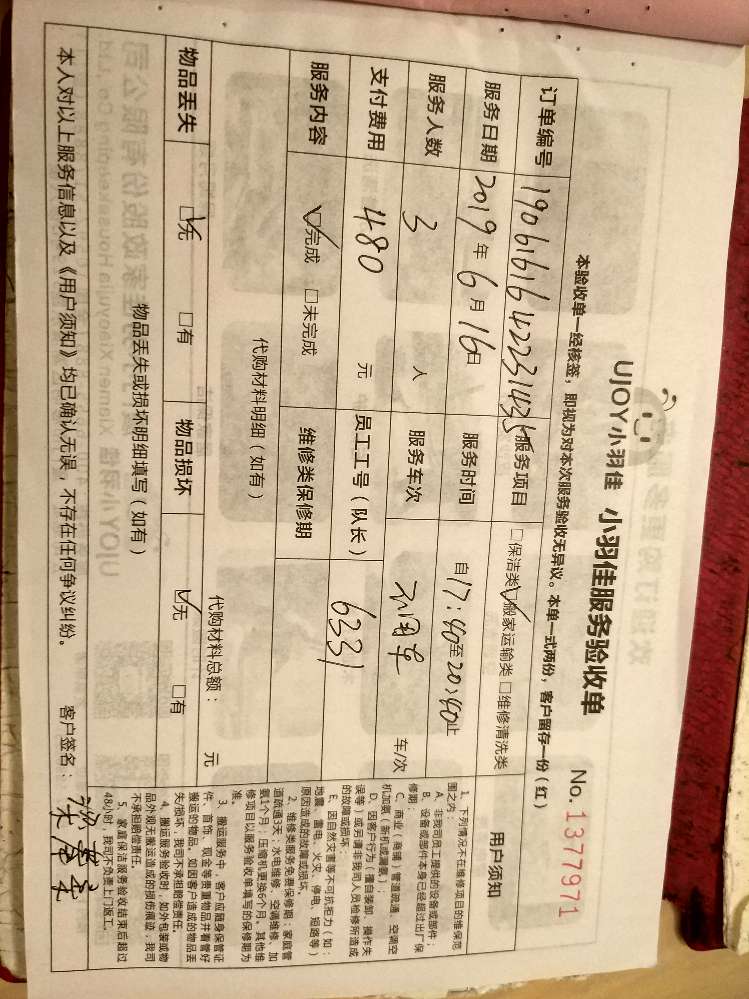 UJOY小羽佳 小羽佳服务验收单
No. 1377971
本验收单一经核签，即视为对本次服务验收无异议。本单一式两份，客户留存一份（红）
订单编号 19061616422314235 服务项目 □保洁类 ☑搬家运输类 □维修清洗类
服务日期 2019年6月16日 服务时间 自17:40至20:40止
服务人数 3 人 服务车次 不用车 车/次
支付费用 480 元 员工工号（队长） 6331
服务内容 ☑完成 □未完成 维修类保修期
代购材料明细（如有）
代购材料总额： 元
物品丢失 ☑无 □有 物品损坏 ☑无 □有
物品丢失或损坏明细填写（如有）
本人对以上服务信息以及《用户须知》均已确认无误，不存在任何争议纠纷。 客户签名：
用户须知
1、下列情况不在维修项目的维保范
围之内：
A、非我司员工提供的设备或部件；
B、设备或部件本身已经超过出厂保
修期；
C、商业（商铺）管道疏通、空调空
机加氨（新机或漏氨）；
D、因客户行为（擅自装卸、操作失
误等）或另请非我司人员检修所造成
的故障或损坏；
E、因自然灾害等不可抗拒力（如：
地震、雷电、火灾、停电、短路等）
原因造成的故障或损坏。
2、维修类服务免费保修期：家庭管
道疏通3天；水电维修、空调维修、加
氨1个月；压缩机更换6个月。其他维
修项目以服务验收单填写的保修期为
准。
3、搬运服务中，客户应随身保管证
件、首饰、现金等贵重物品并看管好
搬运的物品。如因客户造成的物品丢
失/损坏，我司不承担赔偿责任。
4、搬运服务验收时，如外包装或物
品外观无搬运造成的损伤痕迹，我司
不承担赔偿责任。
5、家庭保洁服务验收结束后超过
48小时，我司不负责上门返工。